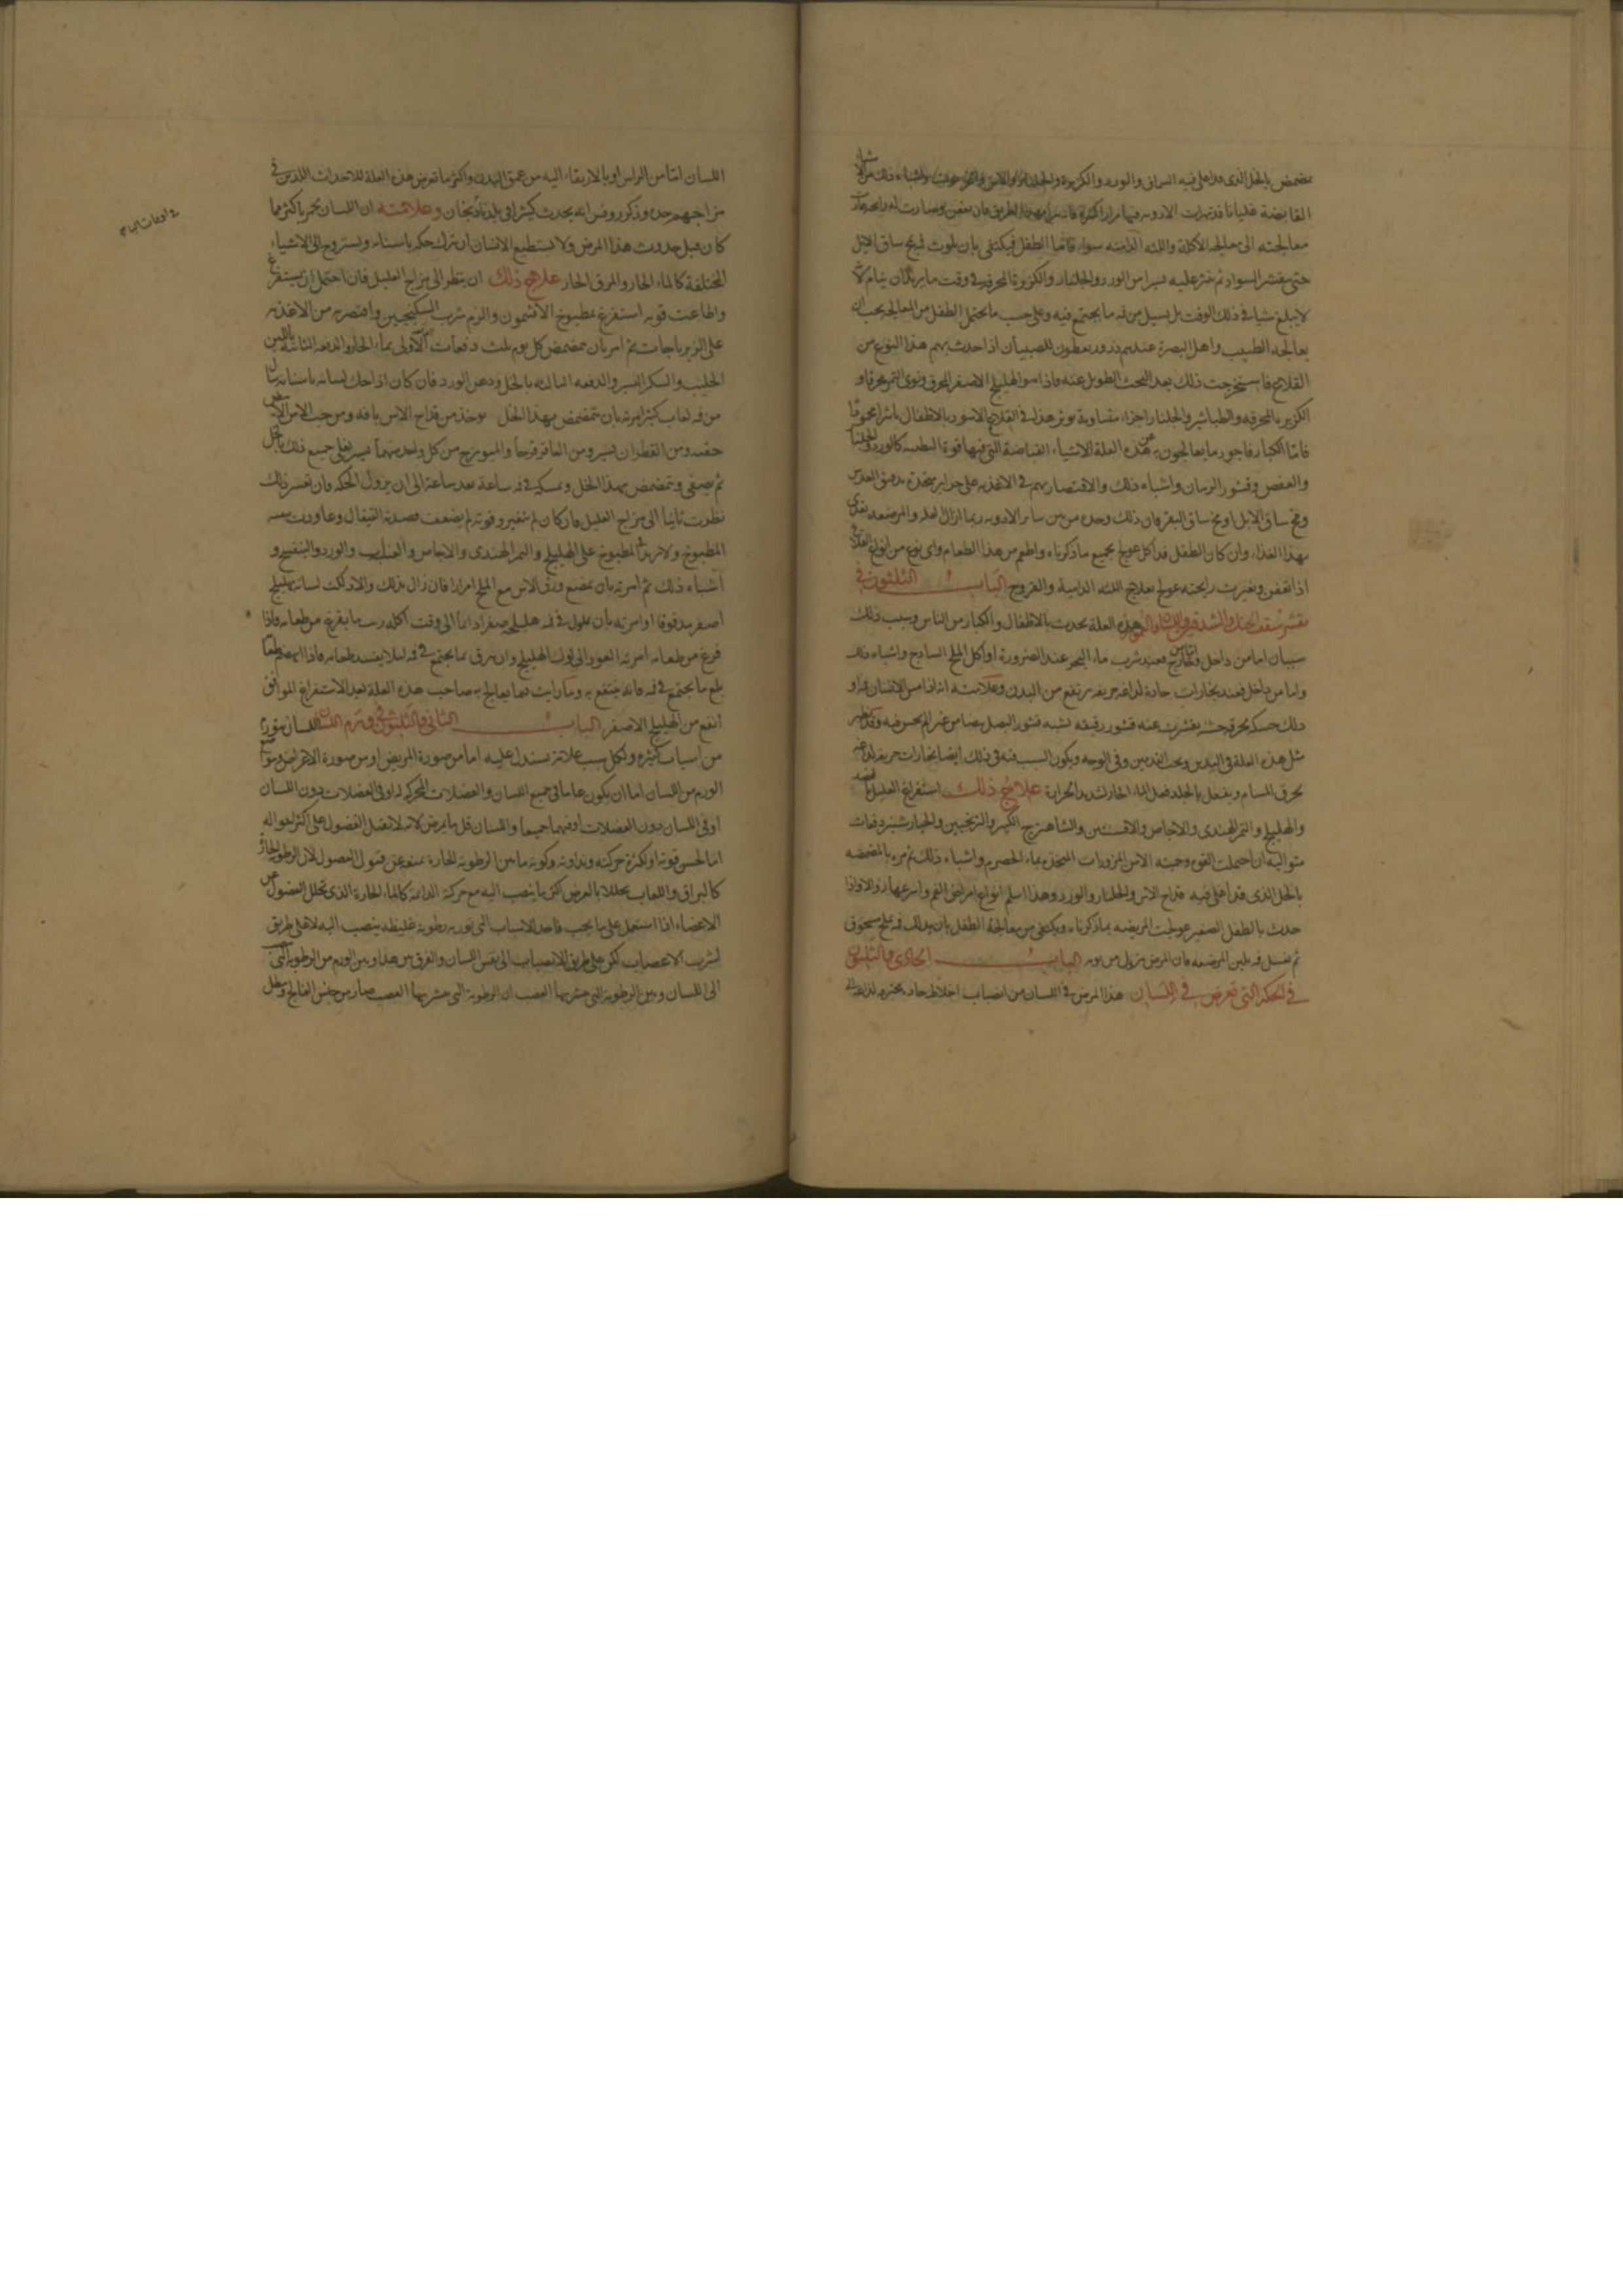 يتمضمض بالخل الذي قد اغلي فيه السماق والورد والكزبرة والجلنار والاس واشباه ذلك من الاشياء
القابضة غليانا قد تهرت الادويه فيها مرارا كثيرة فانه يبرا بهذا الطريق فان تعفن وصارت له رايحه فان
معالجته الى معالجه الاكلة واللثه الداميه سواء فاما الطفل فيكتفى بان يلوث في مخ ساق الابل
حتى يتقشر السواد ثم ينثر عليه يسيرا من الورد والجلنار والكزبرة المحرقه في وقت ما يريد ان ينام لا
لا يبلع شيا في ذلك الوقت بل يسيل من فمه ما يجتمع فيه وعلى حسب ما يحتمل الطفل من المعالجه يجب ان
يعالجه الطبيب واهل البصرة عندهم ذرور يعطون للصبيان اذا حدث بهم هذا النوع من
القلاع فاستخرجت ذلك بعد البحث الطويل عنه فاذا هو الهليلج الاصفر المحرق ونوى التمر محرقا و
الكزبره المحرقه والطباشير والجلنار اجزاء متساوية يوثر هذا في القلاع الاسود بالاطفال اثرا محمودا
فاما الكبار فاجود ما يعالجون به من هذه العلة الاشياء القباضة التي فيها قوة لطيفه كالورد والجلنار
والعفص وقشور الرمان واشباه ذلك والاقتصار بهم في الاغذيه على حرابر متخذة بدقيق العدس
ومخ ساق الابل او مخ ساق البقر فان ذلك وحده من بين ساير الادويه ربما ازال العله والمرضعه تغذى
بهذا الغذاء وان كان الطفل قد اكل عولج بجميع ما ذكرناه واطعم من هذا الطعام واى نوع من انواع القلاع
اذا تعفن وتغيرت رايحته عولج بعلاج اللثه الداميه والقروح الباب الثلثون في
تقشر سقف الحنك والشدقين واللسان والعمور هذه العلة تحدث بالاطفال والكبار من الناس وسبب ذلك
سببان اما من داخل واما من خارج فعند شرب ماء البحر عند الضرورة او اكل الملح الساذج واشباه ذلك
واما من داخل فعند بخارات حادة لذاعه حريفه ترتفع من البدن وعلامته انه اذا مس الانسان فمه او
دلك حنكه بخرقة خشنه تقشرت عنه قشور رقيقه تشبه قشور البصل بيضا من غير الم يحس به وقد تظهر
مثل هذه العلة في اليدين وتحت القدمين وفي الوجه ويكون السبب فيه في ذلك ايضا بخارات حريفه لذاعه
تحرق المسام ويفعل بالجلد فعل الماء الحار الشديد الحرارة علاج ذلك استفراغ العليل بالفصد
والهليلج والتمر الهندي والاجاص والافسنتين والشاهترج الكبير والترنجبين والخيارشنبر دفعات
متواليه ان احتملت القوى وحميته الامن المزورات المتخذه بماء الحصرم واشباه ذلك ثم مره بالمضمضه
بالخل الذي قد اغلي فيه قداح الاس والجلنار والورد وهذا اسلم انواع امراض الفم واسرعها زوالا واذا
حدث بالطفل الصغير عولجت المرضعه بما ذكرناه ويكتفى من معالجة الطفل بان يدلك فمه بملح مسحوق
ثم يغسل فمه بلبن المرضعه فان المرض يزول من يومه الباب الحادي والثلثون
في الحكه التي تعرض في اللسان هذا المرض في اللسان من انصباب اخلاط حاده محترقه لذاعة الى
اللسان امّا من الراس او بالارتقاء اليه من عمق البدن واكثر ما تعرض هذه العلة للاحداث اللذين في
مزاجهم حده وذكر روفس انه يحدث كثيرا في بلدنا ذيخان وعلامته ان اللسان يحمر باكثر مما
كان قبل حدوث هذا المرض ولا يستطيع الانسان ان يترك حكه باسنانه ويستروح الى الاشياء
المختلفة كالماء الحار والمرق الحار علاج ذلك ان ينظر الى مزاج العليل فان احتمل ان يستفرغ
واطاعت قوته استفرغ بمطبوخ الافتيمون والزم شرب السكنجبين واقتصر به من الاغذيه
على الزيرباجات ثم امر بان يتمضمض كل يوم ثلث دفعات الاولى بماء الحار والدفعه الثانيه باللبن
الحليب والسكر اليسير والدفعه الثالثه بالخل ودهن الورد فان كان اذا حك لسانه باسنانه سال
من فمه لعاب كثير امرته بان يتمضمض بهذا الخل يوخذ من قداح الاس باقه ومن حب الاس الابيض
حفنه ومن القطران يسير ومن العاقرقرحا والميوزج من كل واحد منهما يسير يغلى جميع ذلك بالخل
ثم يصفى ويتمضمض بهذا الخل ويمسكه في فمه ساعة بعد ساعة الى ان يزول الحكه فان تعسر ذلك
نظرت ثانيا الى مزاج العليل فان كان لم يتغير وقوته لم تضعف فصدته القيفال وعاودت سقيه
المطبوخ ولا تزيد في المطبوخ على الهليلج والتمر الهندي والاجاص والعناب والورد والبنفسج و
اشباه ذلك ثم امرته بان يمضغ ورق الاس مع الملح امرارا فان زال بذلك والا دلكت لسانه بهليلج
اصفر مدقوقا او امرته بان يلوك في فمه هليلجه صفرا دائما الى وقت اكله ريث ما يفرغ من طعامه فاذا
فرغ من طعامه امرته العود الى لوك الهليلج وان يبزق ما يجتمع في فمه ليلا يفسد طعامه فاذا انهضم طعامه
بلع ما يجتمع في فمه فانه ينتفع به وما رايت فيما يعالج به صاحب هذه العلة بعد الاستفراغ الموافق
انفع من الهليلج الاصفر الباب الثاني والثلثون في ورم اللسان اللسان يتورم
من اسباب كثيره ولكل سبب علامة يستدل عليه اما من صورة المريض او من صورة الاعراض وموضع
الورم من اللسان اما ان يكون عاما في جميع اللسان والعضلات المحركه له او في العضلات دون اللسان
او في اللسان دون العضلات او فيهما جميعا واللسان قل ما يمرض لانه لا تقبل الفضول على اكثر احواله
اما لحسن قوته او لكثرة حركته ونداوته وكونه ما بين الرطوبة الحارة يمنعه عن قبول الفضول لان الرطوبه الحارّة
كالبزاق واللعاب يحللا بالعرض اكثر ما ينصب اليه مع حركته الدائمة كالماء الحارة الذي تحلل الفضول من
الاعضاء اذا استعمل على ما يجب فاحد الاسباب التي تورمه رطوبة غليظة ينصب اليه لا على طريق
تشرب الاعصاب لكن على طريق الانصباب الى نفس اللسان والفرق بين هذا وبين الورم من الرطوبه التي
الى اللسان وبين الرطوبة التي تتشربها العصب ان الرطوبة التي يتشربها العصب صار من جنس الفالج وبطل
في اوقات الحاجه